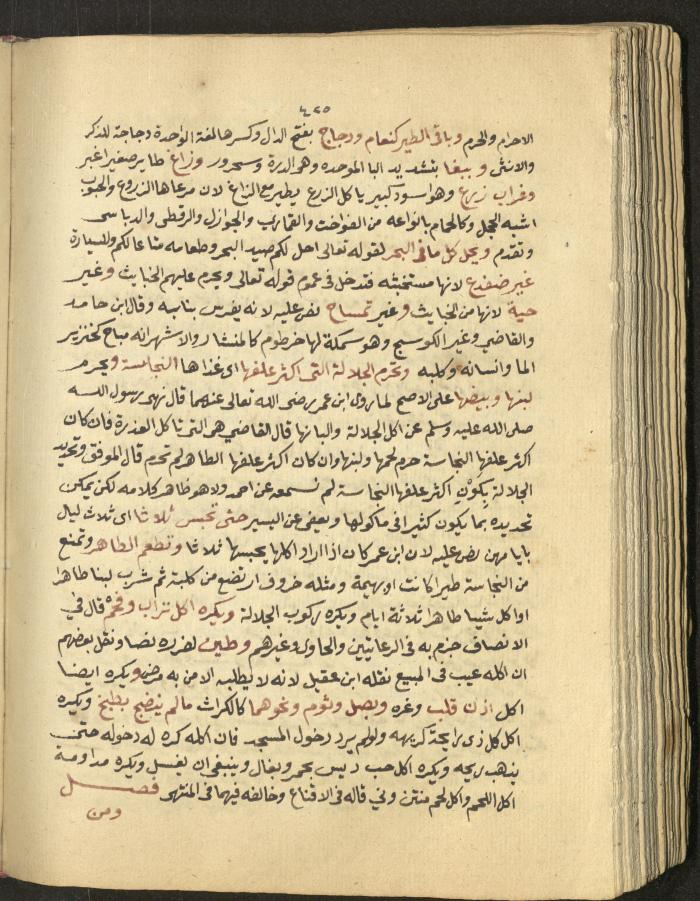 ٤٢٥
الاحرام والحرم وباقى الطير كنعام ودجاج بفتح الدال وكسرها لغة الواحدة دجاجة للذكر
والانثى وببغا بتشديد البا الموحده وهى الدرة وسحرور وزاغ طاير صغير اغبر
وغراب زرع وهو اسود كبير ياكل الزرع يطير مع الزاغ لان مرعاها الزروع والحبوب
اشبه الحجل وكالحمام بانواعه من الفواخت والقمارى والجوازل والرقطى والدباسى
وتقدم ويحل كل ما فى البحر لقوله تعالى احل لكم صيد البحر وطعامه متاعا لكم وللسيارة
غير ضفدع لانها مستخبثه فتدخل فى عموم قوله تعالى ويحرم عليهم الخبايث وغير
حية لانها من الخبايث وغير تمساح نص عليه لانه يفرس بنابه وقال ابن حامد
والقاضي وغير الكوسج وهو سمكة لها خرطوم كالمنشار والاشهر انه مباح كخنزير
الما وانسانه وكلبه وتحرم الجلالة التى اكثر علفها اى غذاها النجاسة ويحرم
لبنها وبيضها على الاصح لما روى ابن عمر رضى الله تعالى عنهما قال نهى رسول الله
صلى الله عليه وسلم عن اكل الجلالة والبانها قال القاضي هى التى تاكل العذرة فان كان
اكثر علفها النجاسة حرم لحمها ولبنها وان كان اكثر علفها الطاهر لم تحرم قال الموفق وتحديد
الجلالة بكون اكثر علفها النجاسة لم نسمعه عن احمد ولا هو ظاهر كلامه لكن يمكن
تحديده بما يكون كثيرا فى ماكولها ويعفى عن اليسير حتى تحبس ثلاثا اى ثلاث ليال
بايامهن نص عليه لان ابن عمر كان اذا اراد اكلها يحبسها ثلاثا وتطعم الطاهر وتمنع
من النجاسة طيرا كانت او بهيمة ومثله خروف ارتضع من كلبة ثم شرب لبنا طاهرا
او اكل شيا طاهرا ثلاثة ايام ويكره ركوب الجلالة ويكره اكل تراب وفحم قال في
الانصاف جزم به فى الرعايتين والحاوى وغيرهم وطين لضرره نصا ونقل بعضهم
ان اكله عيب فى المبيع نقله ابن عقيل لانه لا يطلبه الا من به مرض ويكره ايضا
اكل اذن قلب وغده وبصل وثوم ونحوهما كالكراث ما لم ينضج بطبخ ويكره
اكل كل ذى رايحة كريهه ولو لم يرد دخول المسجد فان اكله كره له دخوله حتى
يذهب ريحه ويكره اكل حب ديس بحمر وبغال وينبغى ان يغسل ويكره مداومة
اكل اللحم واكل لحم منتن ونى قاله فى الاقناع وخالفه فيهما فى المنتهى فصل
ومن